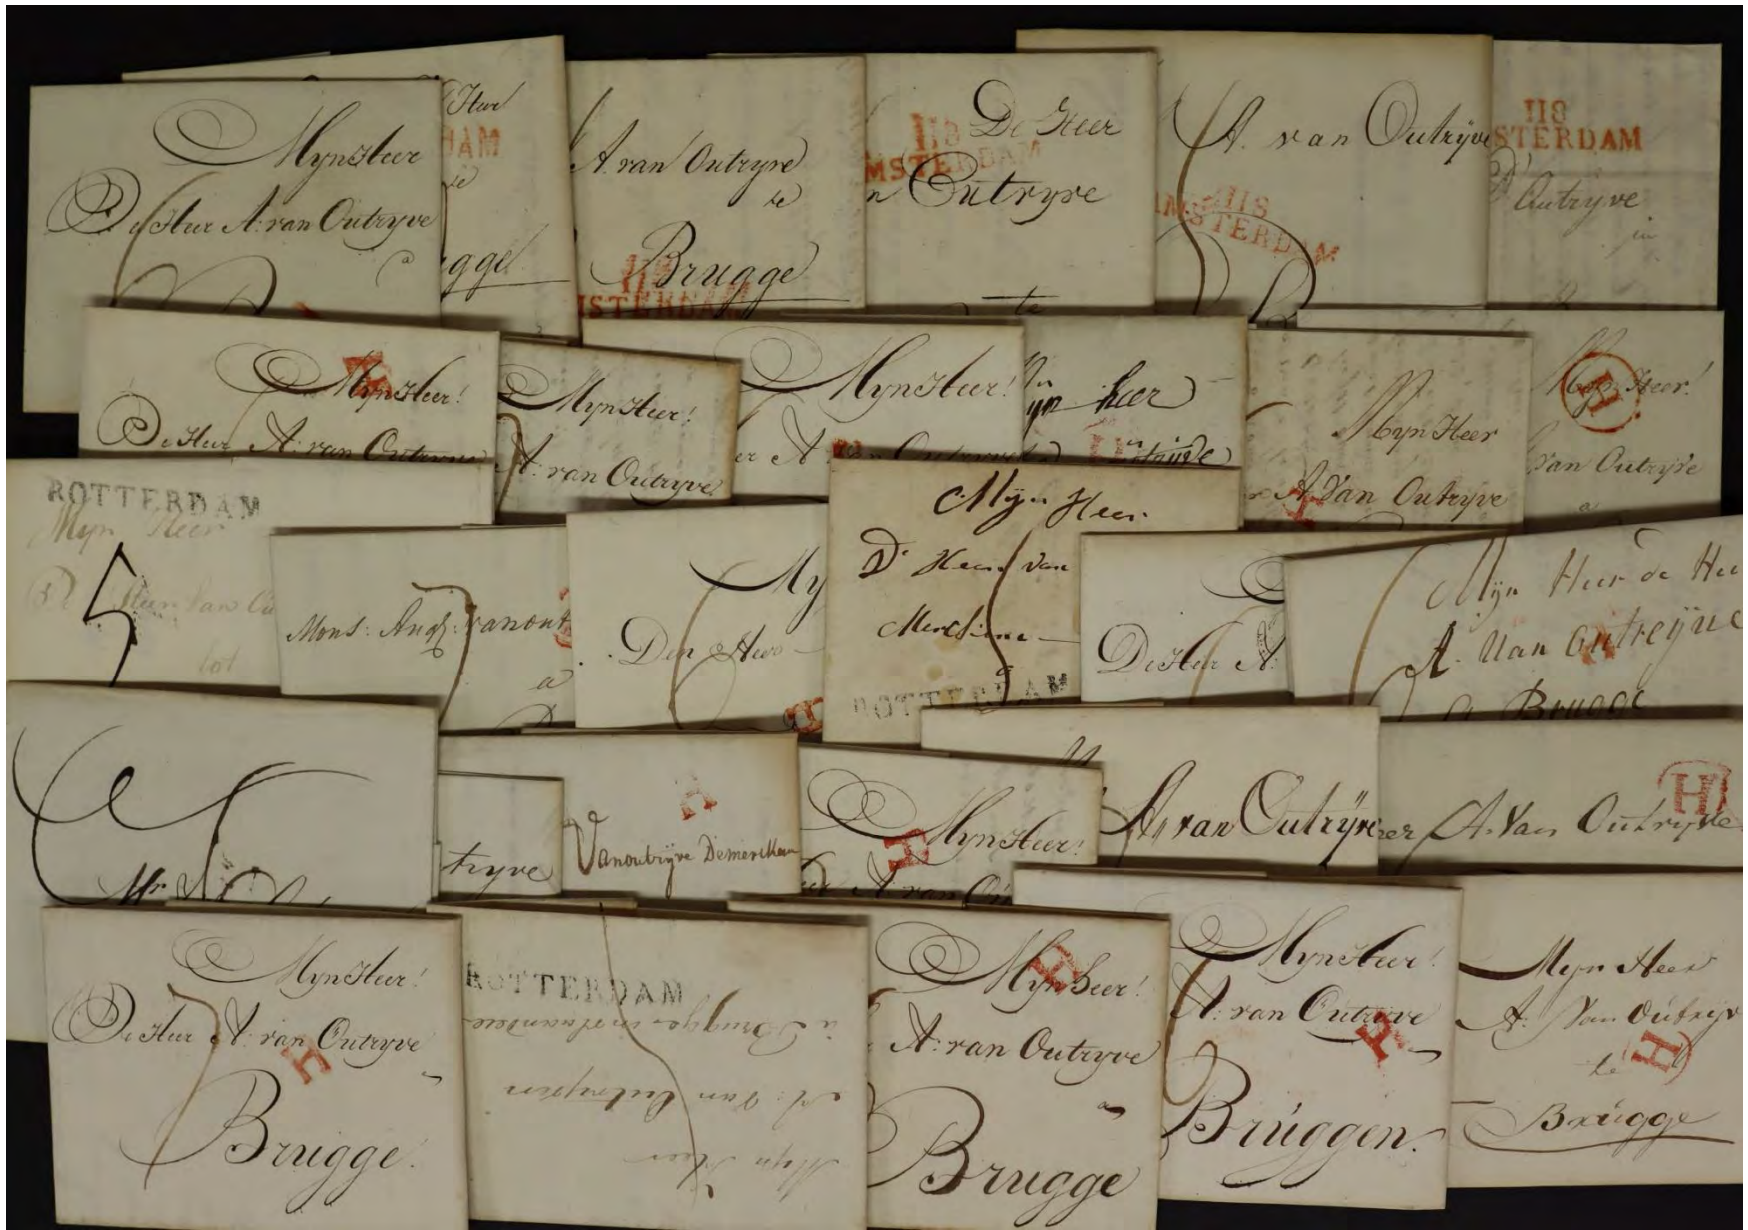 Mijn Heer
De Heer A: van Outryve
a
Heer
DAM
gge
A. van Outryve
te
Brugge
118
MSTERDAM
118
De Heer
MSTERDAM
Outryve
te
A. van Outrÿve
118
AMSTERDAM
118
STERDAM
Outryve
in
Mijn Heer!
De Heer A: van Outryve
Mijn Heer!
A: van Outryve
Mijn Heer!
er A. van Outryve
heer
Myn Heer
A. Van Outryve
Myn Heer!
H
Van Outryve
a
ROTTERDAM
Myn Heer
De Heer Van Ou
tot
5
Mons: Andr: vanout
a
7
My
Den Heer
H
Mÿn Heer
Dr Heer Van
ROTTERDAM
De Heer A:
Mÿn Heer de Hee
A. Van Outreÿve
a Brugge
Mr
tryve
H
Vanoutrÿve Demerckem
Mijn Heer!
H
A: van Ou
A. van Outrÿve
H
er A. Van Outryve
Mijn Heer!
De Heer A: van Outryve
H
Brugge.
ROTTERDAM
Myn Heer
A: Van Outryven
a Brugge in vlaanderen
H
Mijn heer!
A: van Outryve
a
Brugge
Mijn Heer!
A: van Outryve
H
a
Brúggen.
Mijn Heer
A. Van Oútryv
te
H
Brúgge